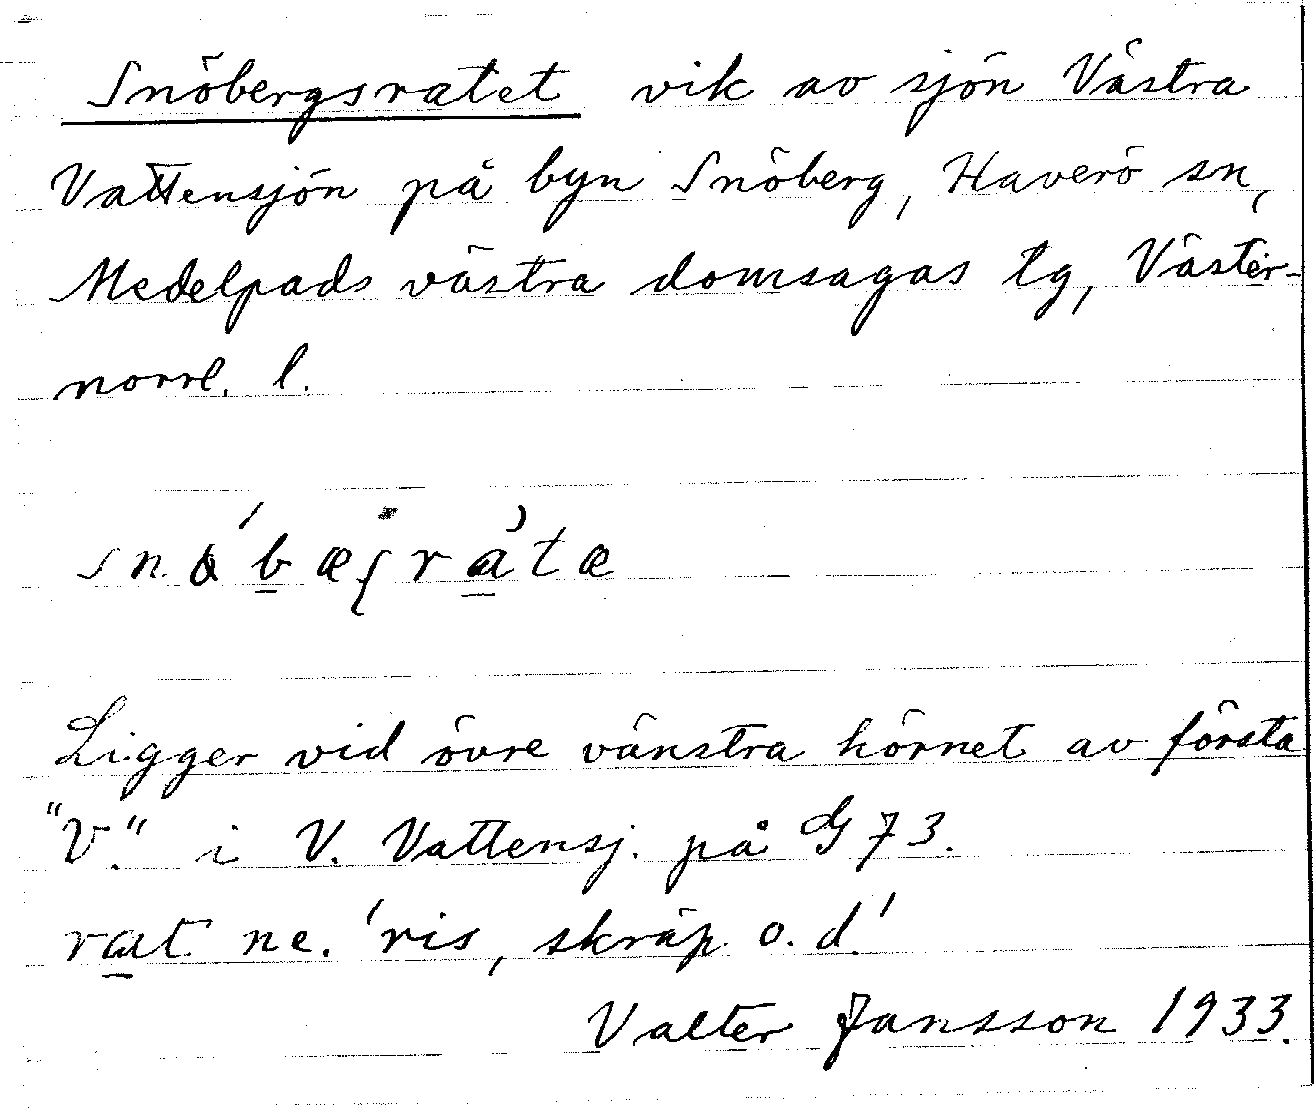 Snöbergsratet vik av sjön Västra
Vattensjön på byn Snöberg, Haverö sn,
Medelpads västra domsagas tg, Väster-
norrl. l.
Ligger vid övre vänstra hörnet av första
"V." i V. Vattensj. på G 73.
rat ne. 'ris, skräp o.d.'
Valter Jansson 1933.